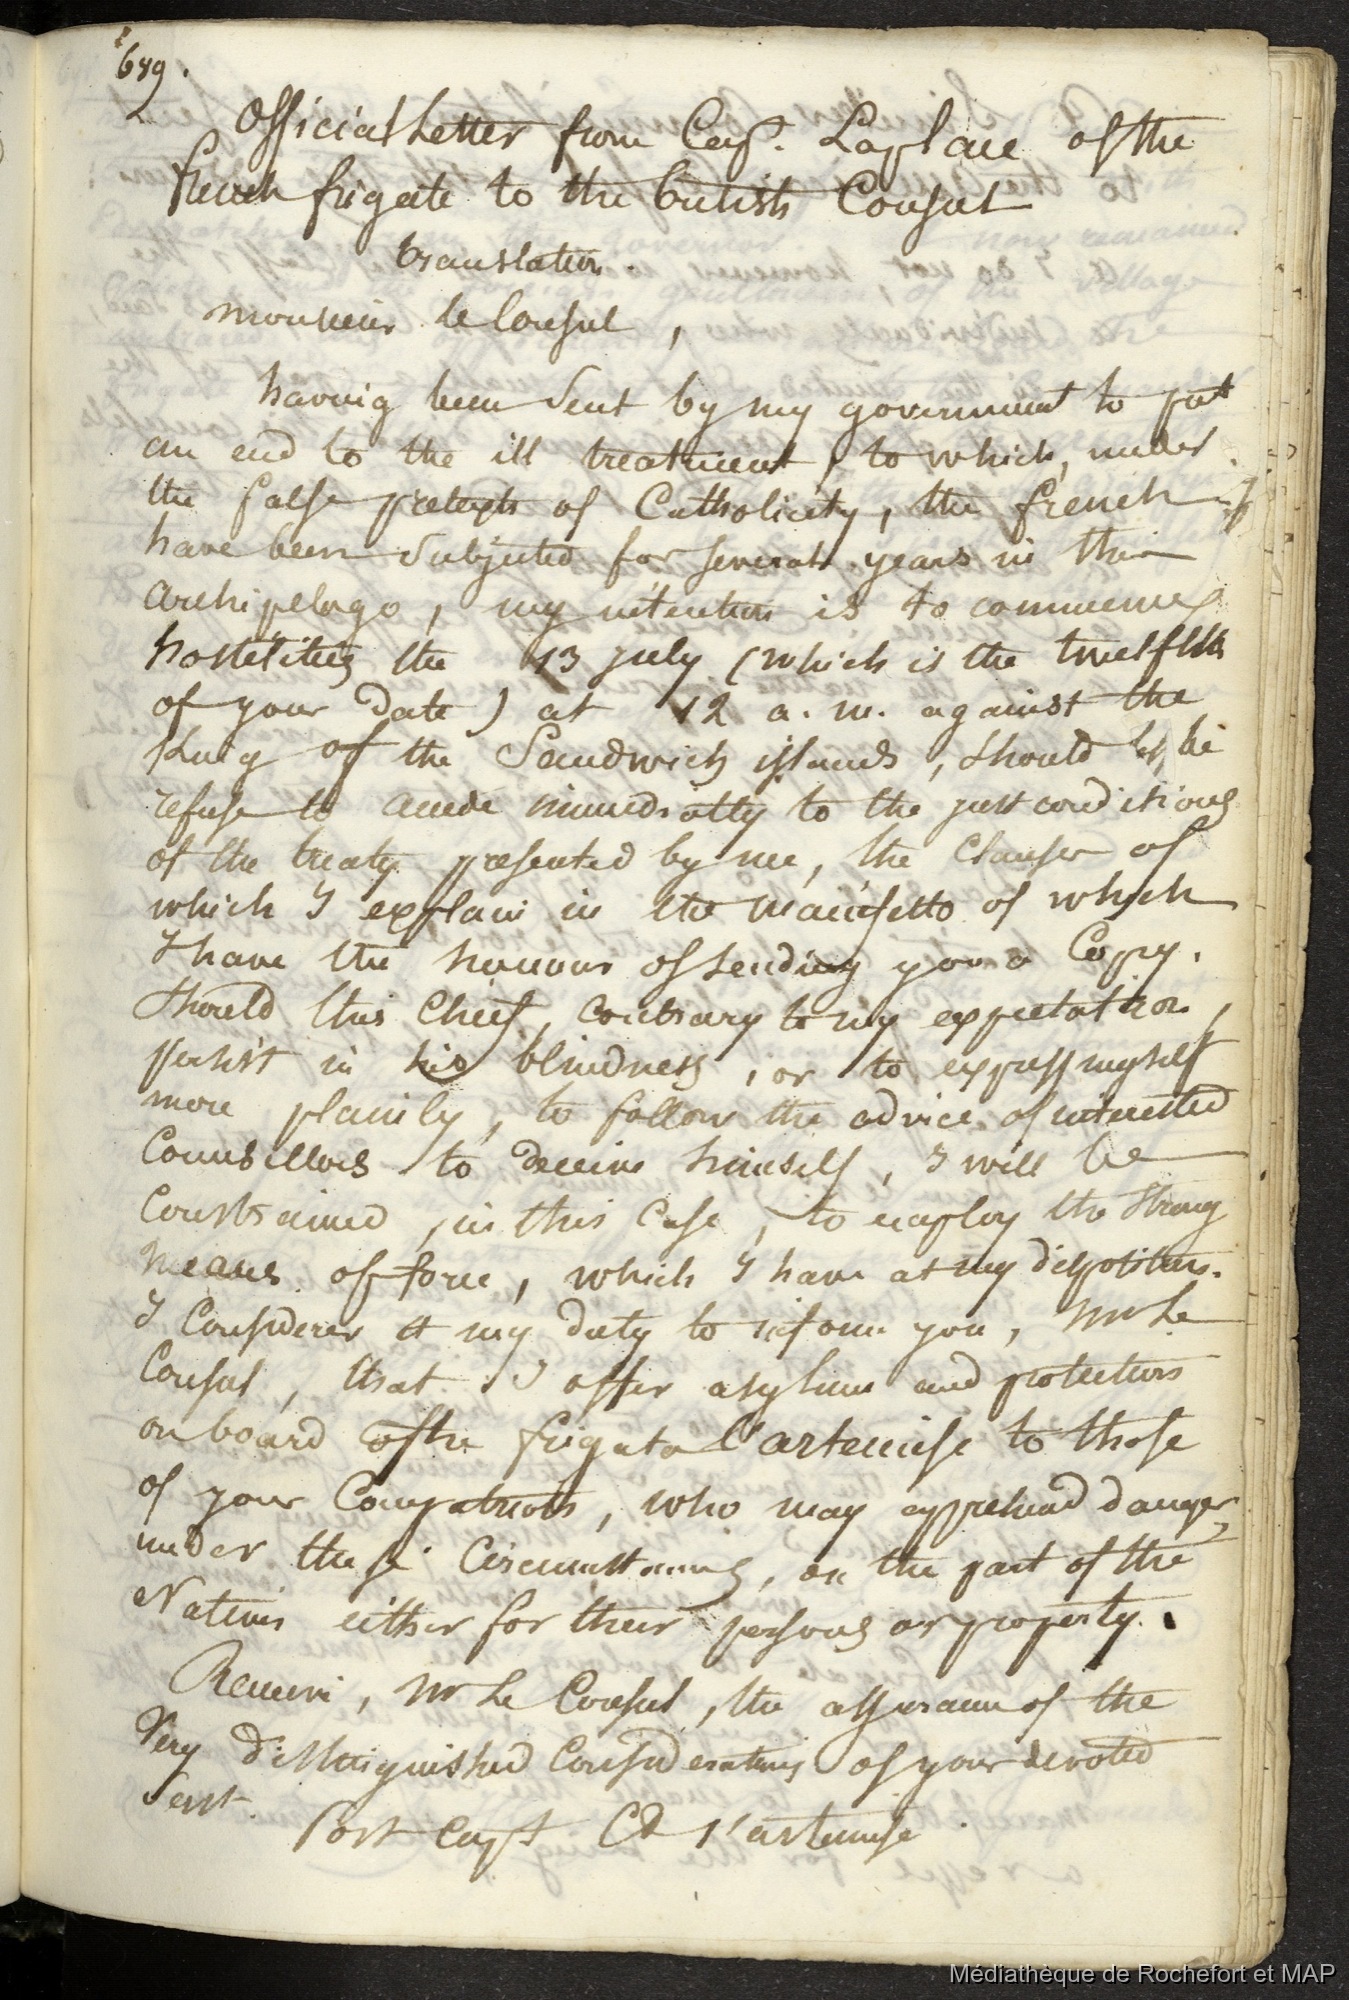 689.
Official Letter from Cap. Laplace of the
french frigate to the british Consul
translation.
monsieur le Consul,
having been sent by my government to put
an end to the ill treatment, to which, under
the false pretext of Catholicity, the french
have been subjected for several years in this
archipelago, my intention is to commence
hostilities the 13 july (which is the twelfth
of your date) at 12 a.m. against the
King of the Sandwich islands, should he
refuse to accede immediatly to the just conditions
of the treaty presented by me, the Clauses of
which I explain in the Manifesto of which
I have the honour of sending you a Copy.
Should this Chief, contrary to my expectation,
persist in his blindness, or to express myself
more plainly, to follow the advice of interested
Counsillors to deceive himself, I will be
Constrained, in this case, to employ the strong
means of force, which I have at my disposition.
I Consider it my duty to inform you, Mr Le
Consul, that I offer asylum and protection
on board of the frigate l'artemise to those
of your Compatriots, who may apprehend danger,
under these Circumstances, on the part of the
Natives either for their persons or property.
Receive, Mr Le Consul, the assurance of the
Very distinguished Consideration of your devoted
Servt.
Post Capt Cd l'artemise
Médiathèque de Rochefort et MAP